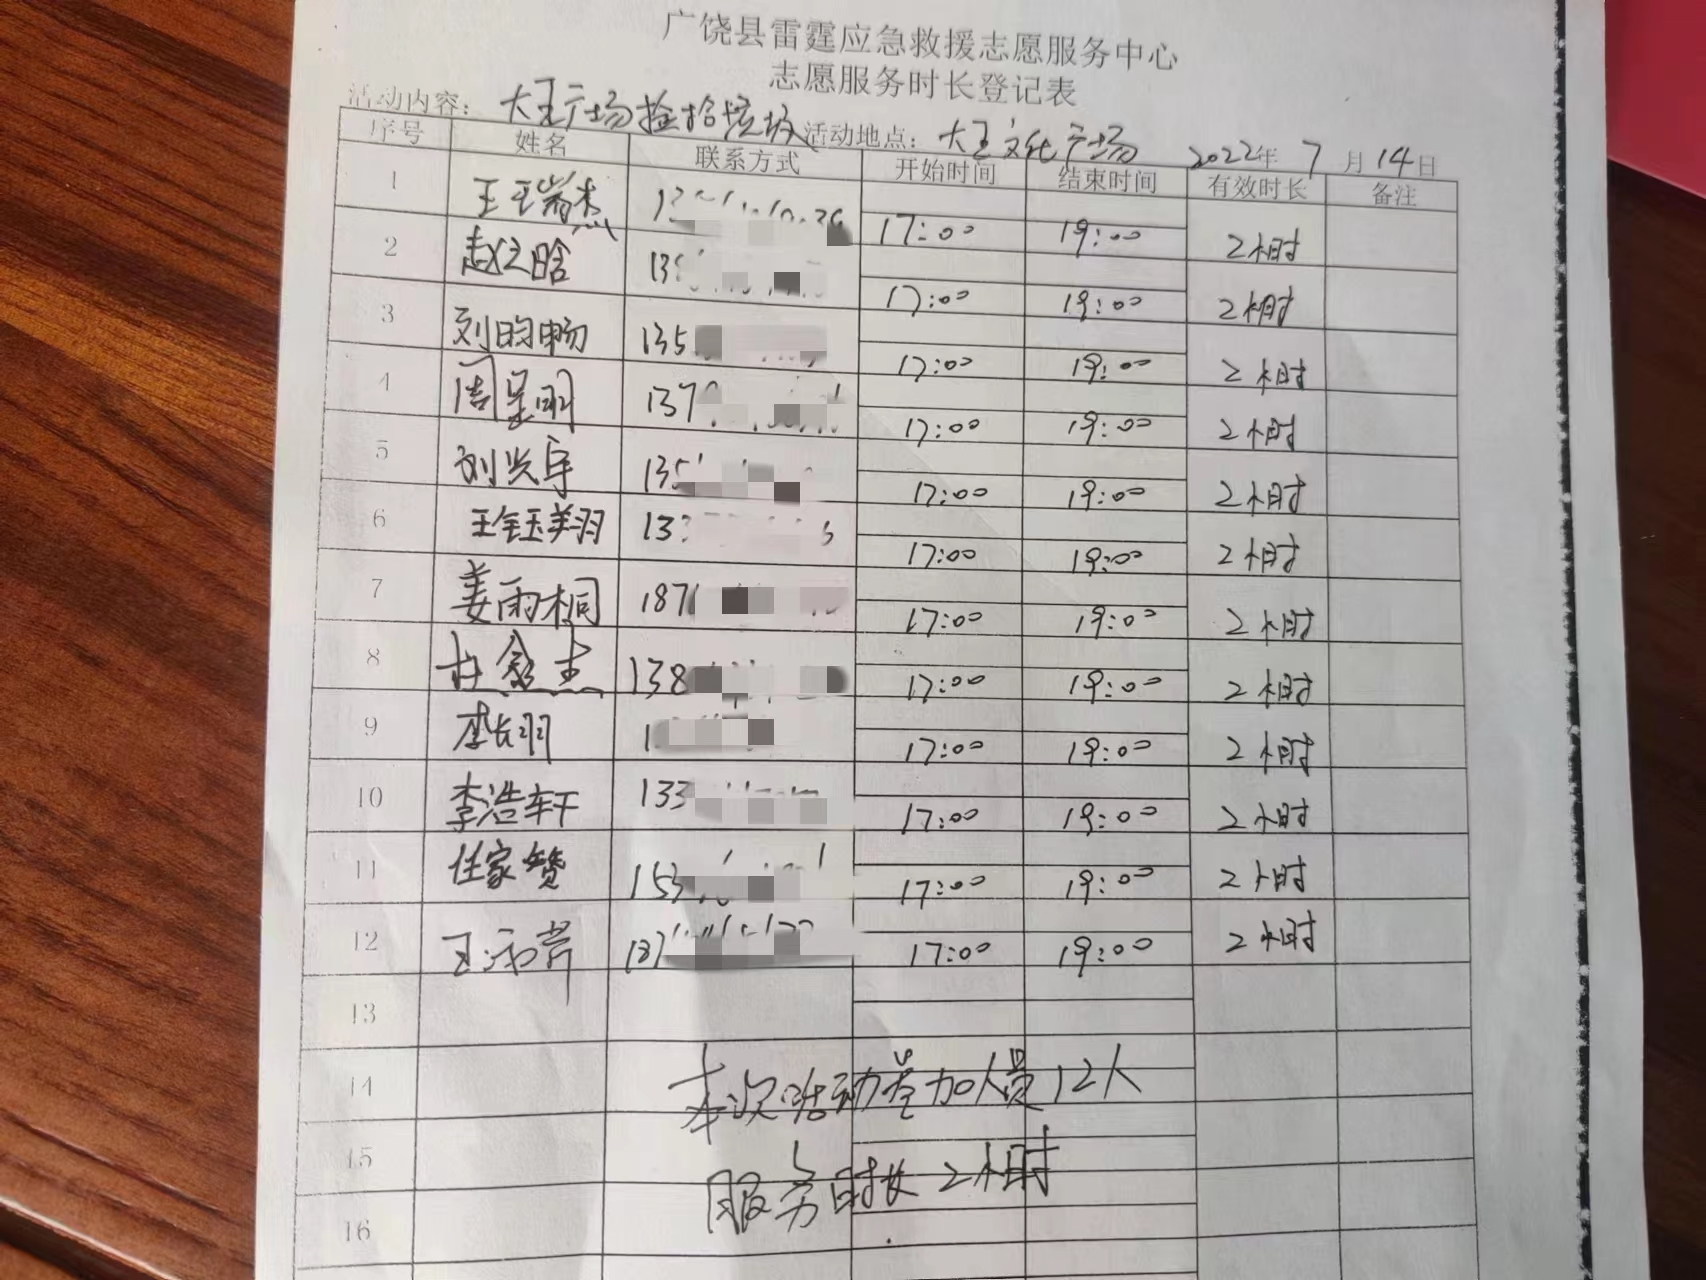 广饶县雷霆应急救援志愿服务中心
志愿服务时长登记表
活动内容：大王广场捡拾垃圾 活动地点：大王文化广场 2022年7月14日
序号 姓名 联系方式 开始时间 结束时间 有效时长 备注
1 17:00 19:00 2小时
2 赵 晗 13 17:00 19:00 2小时
3 刘昀畅 135 17:00 19:00 2小时
4 周 137 17:00 19:00 2小时
5 刘兴宇 135 17:00 19:00 2小时
6 13 17:00 19:00 2小时
7 姜雨桐 187 17:00 19:00 2小时
8 杜鑫杰 138 17:00 19:00 2小时
9 李长羽 1 17:00 19:00 2小时
10 李浩轩 133 17:00 19:00 2小时
11 任家赞 153 17:00 19:00 2小时
12 王 17:00 19:00 2小时
13
14 本次活动参加人员12人
15 服务时长2小时
16